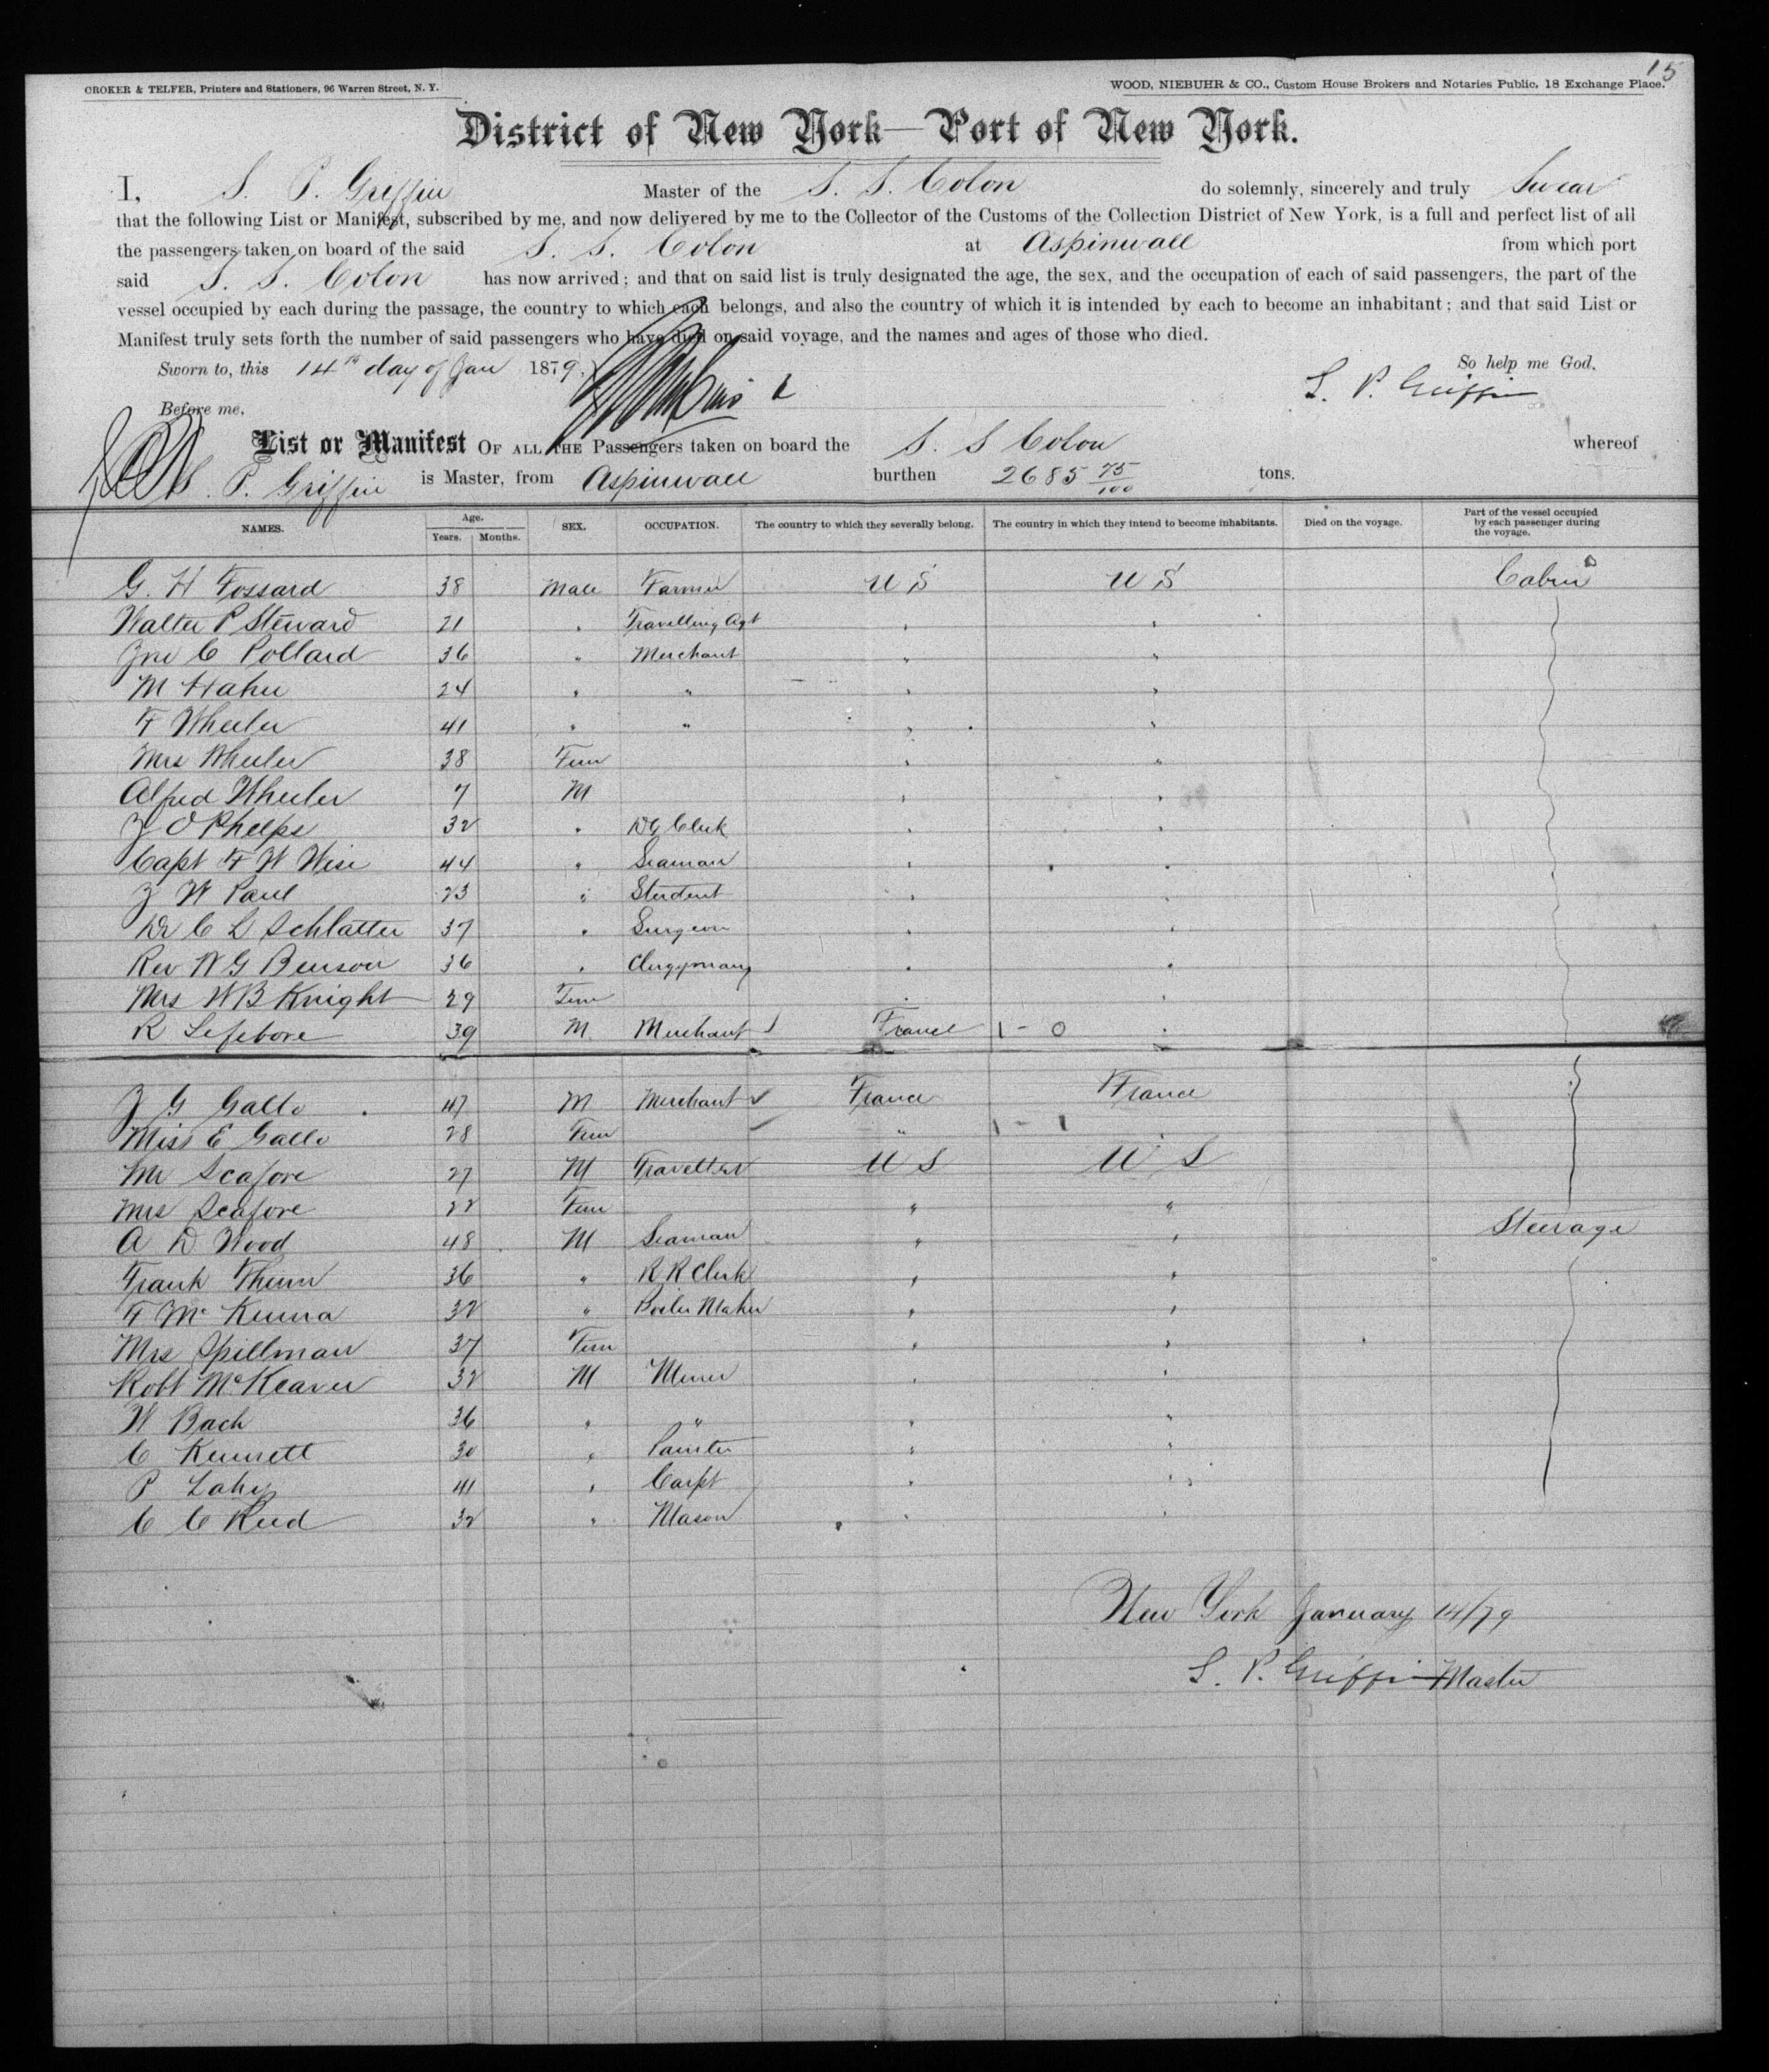 15
CROKER & TELFER, Printers and Stationers, 96 Warren Street, N. Y.
WOOD, NIEBUHR & CO., Custom House Brokers and Notaries Public, 18 Exchange Place.
District of New York—Port of New York.
I, S. P. Griffin Master of the S. S. Colon do solemnly, sincerely and truly Swear
that the following List or Manifest, subscribed by me, and now delivered by me to the Collector of the Customs of the Collection District of New York, is a full and perfect list of all
the passengers taken on board of the said S. S. Colon at Aspinwall from which port
said S. S. Colon has now arrived; and that on said list is truly designated the age, the sex, and the occupation of each of said passengers, the part of the
vessel occupied by each during the passage, the country to which each belongs, and also the country of which it is intended by each to become an inhabitant; and that said List or
Manifest truly sets forth the number of said passengers who have died on said voyage, and the names and ages of those who died.
Sworn to, this 14th day of Jan 1879. So help me God,
Before me, S. P. Griffin
List or Manifest OF ALL THE Passengers taken on board the S. S Colon whereof
S. P. Griffin is Master, from Aspinwall burthen 2685 75/100 tons.
NAMES. Age. Years. Months. SEX. OCCUPATION. The country to which they severally belong. The country in which they intend to become inhabitants. Died on the voyage. Part of the vessel occupied by each passenger during the voyage.
G. H Fossard 38 Male Farmer U S U S Cabin
Walter P Steward 21 " Travelling Agt " "
Jno C Pollard 36 " Merchant " "
M Hahn 24 " " " "
F Wheeler 41 " " " "
Mrs Wheeler 38 Fem " "
Alfred Wheeler 7 M " "
J O Phelps 32 " DG Clerk " "
Capt F W Wise 44 " Seaman " "
J W Paul 23 " Student " "
Dr C L Schlatter 37 " Surgeon " "
Rev W G Benson 36 " Clergyman " "
Mrs W B Knight 29 Fem " "
R Lefebvre 39 M. Merchant France 1 - 0 "
J G Gallo 47 M Merchant France France
Miss E Gallo 28 Fem " 1 - 1 "
Mr Seafore 27 M Traveller U S U S
Mrs Seafore 22 Fem " "
A D Wood 48 M Seaman " " Steerage
Frank Thum 36 " R R Clerk " "
F McKenna 32 " Boiler Maker " "
Mrs Spillman 37 Fem " "
Robt McKeaver 32 M Miner " "
W Bach 36 " " " "
C Kennett 30 " Painter " "
P Lahy 41 " Carpt " "
C C Reed 32 " Mason " "
New York January 14/79
S. P. Griffin Master